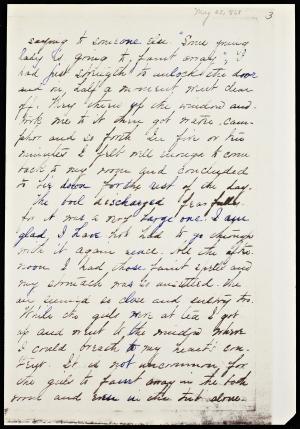 May 22, 1868
3
saying to someone else "Some young
lady is going to faint away"; I
had just strength to unlock the door
and in half a moment went clear
off. They threw up the window and
took me to it and got water, cam-
phor and so forth. In five or ten
minutes I felt well enough to come
back to my room and concluded
to lie down for the rest of the day.
The boil discharged fearfully
for it was a very large one. I am
glad I have not had to go through
with it again since. All the after-
noon I had those faint spells and
my stomach was so unsettled. The
air seemed so close and sickly to.
While the girls were at tea I got
up and went to the window where
I could breath to my heart's con-
tent. It is not uncommon for
the girls to faint away in the bath
room and even in the tub alone.